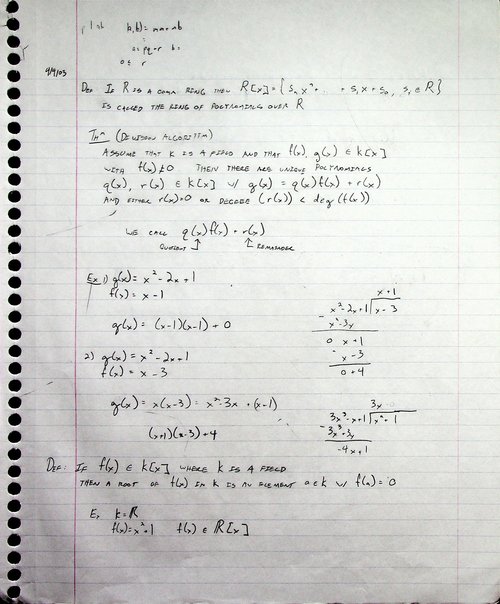 p | ab (a,b) = ma+nb
a = pq+r b =
0 ≤ r
9/9/03
DEF: IF R IS A COMM. RING THEN R[x] = { Sₙxⁿ+... + S₁x + S₀, Sᵢ ∈ R}
IS CALLED THE RING OF POLYNOMIALS OVER R
THᵐ (DIVISION ALGORITHM)
ASSUME THAT K IS A FIELD AND THAT f(x), g(x) ∈ K[x]
WITH f(x) ≠ 0 THEN THERE ARE UNIQUE POLYNOMIALS
q(x), r(x) ∈ K[x] w/ g(x) = q(x)f(x) + r(x)
AND EITHER r(x)=0 OR DEGREE (r(x)) < deg(f(x))
WE CALL q(x)f(x) + r(x)
QUOTIENT REMAINDER
EX 1) g(x) = x² - 2x + 1
f(x) = x - 1
g(x) = (x-1)(x-1) + 0
x+1
x²-2x+1 x-3
- x²-3x
0 x+1
- x-3
0+4
2) g(x) = x² - 2x + 1
f(x) = x - 3
g(x) = x(x-3) = x²-3x + (x-1)
(x+1)(x-3)+4
3x
3x³-x+1 x²+1
- 3x³+3x
-4x+1
DEF: IF f(x) ∈ K[x] WHERE K IS A FIELD
THEN A ROOT OF f(x) IN K IS AN ELEMENT a ∈ K w/ f(a) = 0
Ex K = ℝ
f(x) = x²+1 f(x) ∈ ℝ[x]